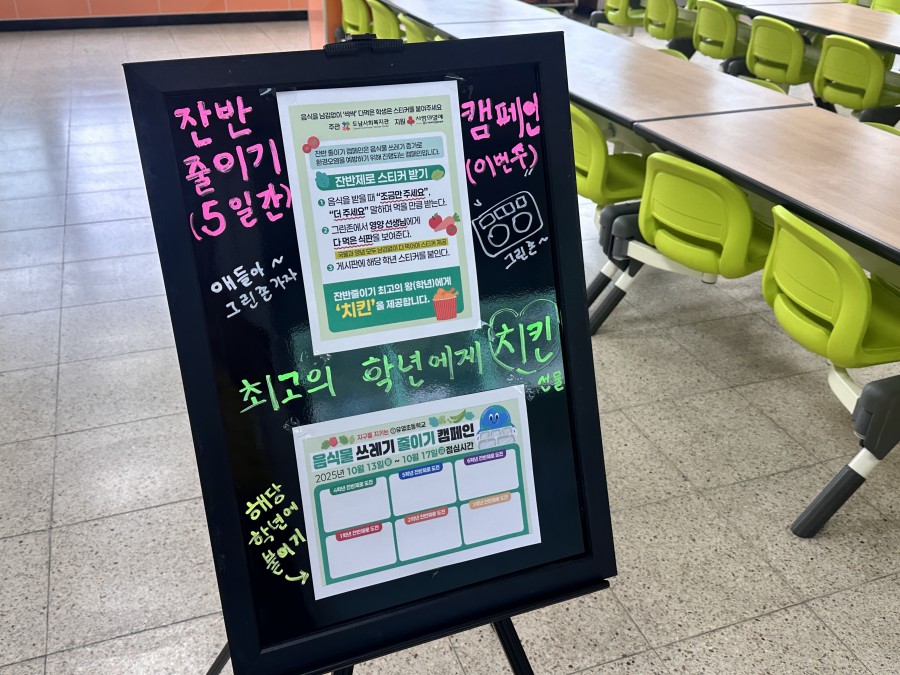 잔반
줄이기
(5일간)
캠페인
(이번주)
얘들아~
그린존 가자
그린존~
음식을 남김없이 '싹싹' 다먹은 학생은 스티커를 붙여주세요
주관 도남사회복지관 지원 사랑의열매
잔반 줄이기 캠페인은 음식물 쓰레기 증가로
환경오염을 예방하기 위해 진행되는 캠페인입니다.
잔반제로 스티커 받기
1 음식을 받을 때 "조금만 주세요",
"더 주세요" 말하며 먹을 만큼 받는다.
2 그린존에서 영양 선생님에게
다 먹은 식판을 보여준다.
국물과 양념 모두 남김없이 다 먹어야 스티커 제공
3 게시판에 해당 학년 스티커를 붙인다.
잔반줄이기 최고의 왕(학년)에게
'치킨'을 제공합니다.
최고의 학년에게 치킨
선물
지구를 지키는
초등학교
음식물 쓰레기 줄이기 캠페인
2025년 10월 13일(월) ~ 10월 17일(금) 점심시간
4학년 잔반제로 도전
5학년 잔반제로 도전
6학년 잔반제로 도전
1학년 잔반제로 도전
2학년 잔반제로 도전
3학년 잔반제로 도전
해당
학년에
붙이기